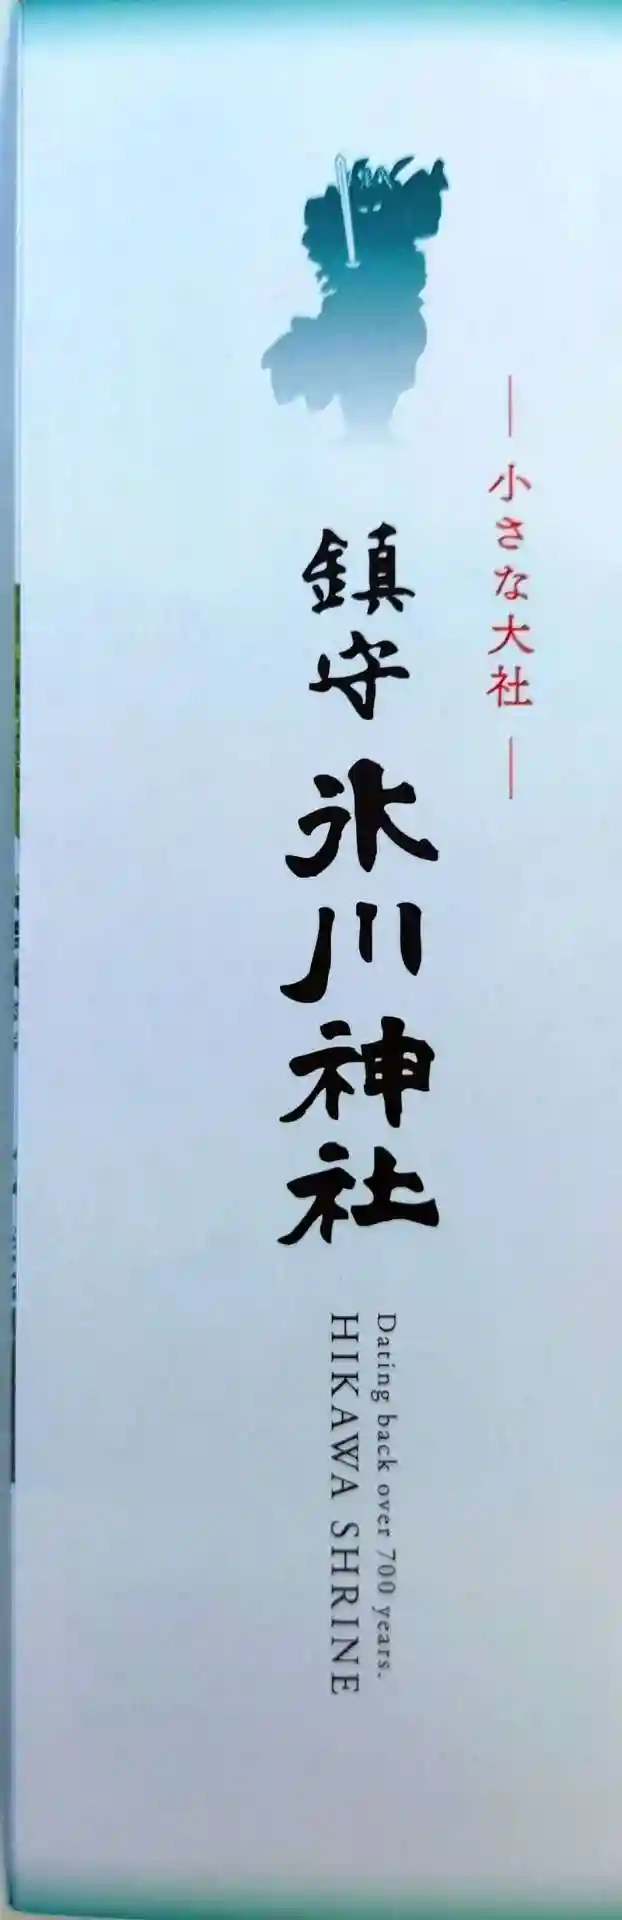 — 小さな大社 —
鎮守 氷川神社
Dating back over 700 years.
HIKAWA SHRINE